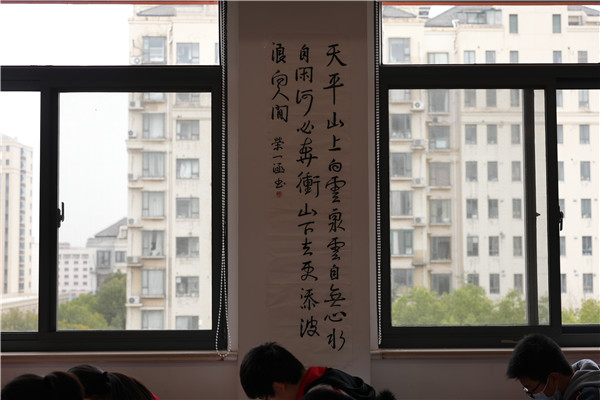 天平山上白雲泉雲自無心水
自閑何必奔衝山下去更添波
浪向人間
榮一涵書